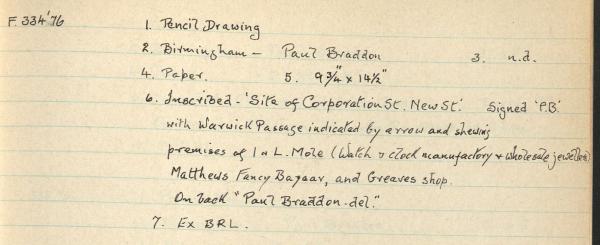 F. 334'76 1. Pencil Drawing
2. Birmingham – Paul Braddon 3. n.d.
4. Paper. 5. 9¾" x 14½"
6. Inscribed - 'Site of Corporation St. New St.' Signed 'P.B'
with Warwick Passage indicated by arrow and shewing
premises of I & L. Mole (Watch & clock manufactory & wholesale jewellers)
Matthews Fancy Bazaar, and Greaves shop.
On back "Paul Braddon. del."
7. Ex BRL.